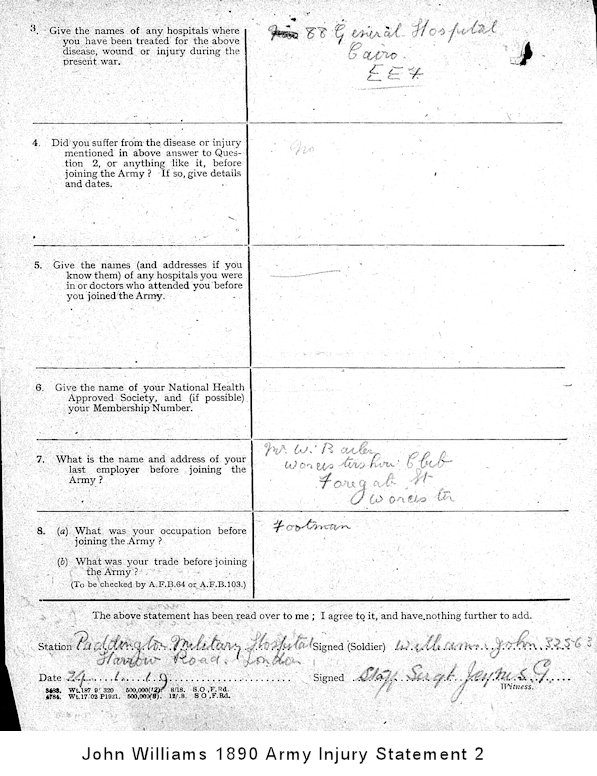 3. Give the names of any hospitals where
you have been treated for the above
disease, wound or injury during the
present war.
88 General Hospital
Cairo.
EEF
4. Did you suffer from the disease or injury
mentioned in above answer to Ques-
tion 2, or anything like it, before
joining the Army ? If so, give details
and dates.
No
5. Give the names (and addresses if you
know them) of any hospitals you were
in or doctors who attended you before
you joined the Army.
6. Give the name of your National Health
Approved Society, and (if possible)
your Membership Number.
7. What is the name and address of your
last employer before joining the
Army ?
Mr W.
Worcestershire Club
Foregate St
Worcester
8. (a) What was your occupation before
joining the Army ?
Footman
(b) What was your trade before joining
the Army ?
(To be checked by A.F.B.64 or A.F.B.103.)
The above statement has been read over to me ; I agree to it, and have nothing further to add.
Station Paddington Military Hospital Signed (Soldier) Williams John 32563
Harrow Road, London
Date 24.1.19 Signed Staff Sergt
Witness.
500,000 8/18. S.O.,F.Rd.
500,000 12/.8. S.O.,F.Rd.
John Williams 1890 Army Injury Statement 2